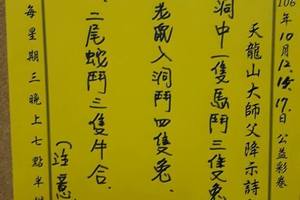 106年10月12.15.17.日公益彩卷
天龍山大師父降示詩
洞中一隻馬鬥三隻兔
老鼠入洞鬥四隻兔、
二尾蛇鬥三隻牛合.
(注意
每星期三晚上七點半